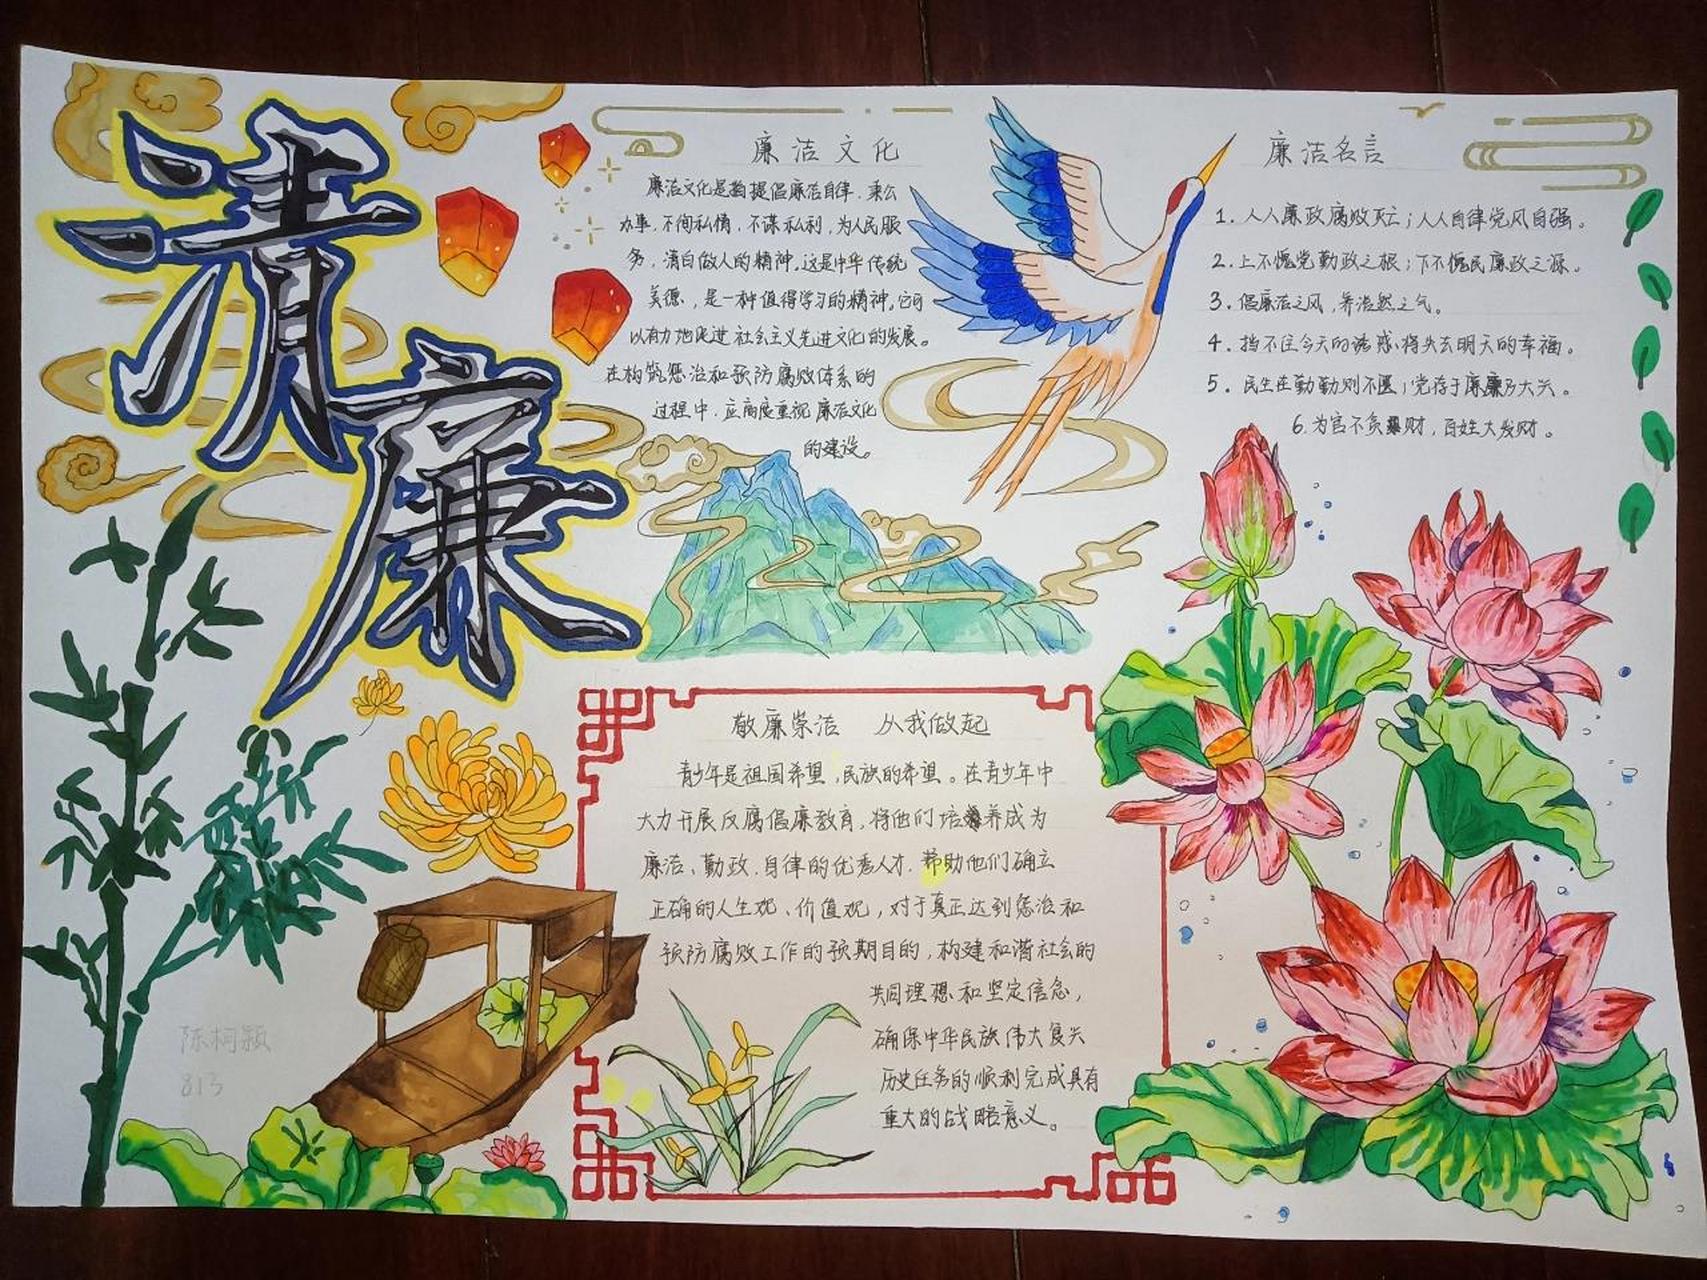 清廉
廉洁文化
廉洁文化是指提倡廉洁自律、秉公
办事,不徇私情,不谋私利,为人民服
务,清白做人的精神。这是中华传统
美德,是一种值得学习的精神。它可
以有力地促进社会主义先进文化的发展。
在构筑惩治和预防腐败体系的
过程中,应高度重视廉洁文化
的建设。
廉洁名言
1.人人廉政腐败灭亡;人人自律党风自强。
2.上不愧党勤政之根;下不愧民廉政之源。
3.倡廉洁之风,养浩然之气。
4.挡不住今天的诱惑,将失去明天的幸福。
5.民生在勤勤则不匮;党存于廉廉乃大兴。
6.为官不贪财,百姓大发财。
敬廉崇洁 从我做起
青少年是祖国希望,民族的希望。在青少年中
大力开展反腐倡廉教育,将他们培养成为
廉洁、勤政、自律的优秀人才,帮助他们确立
正确的人生观、价值观,对于真正达到惩治和
预防腐败工作的预期目的,构建和谐社会的
共同理想和坚定信念,
确保中华民族伟大复兴
历史任务的顺利完成具有
重大的战略意义。
陈柯颖
813